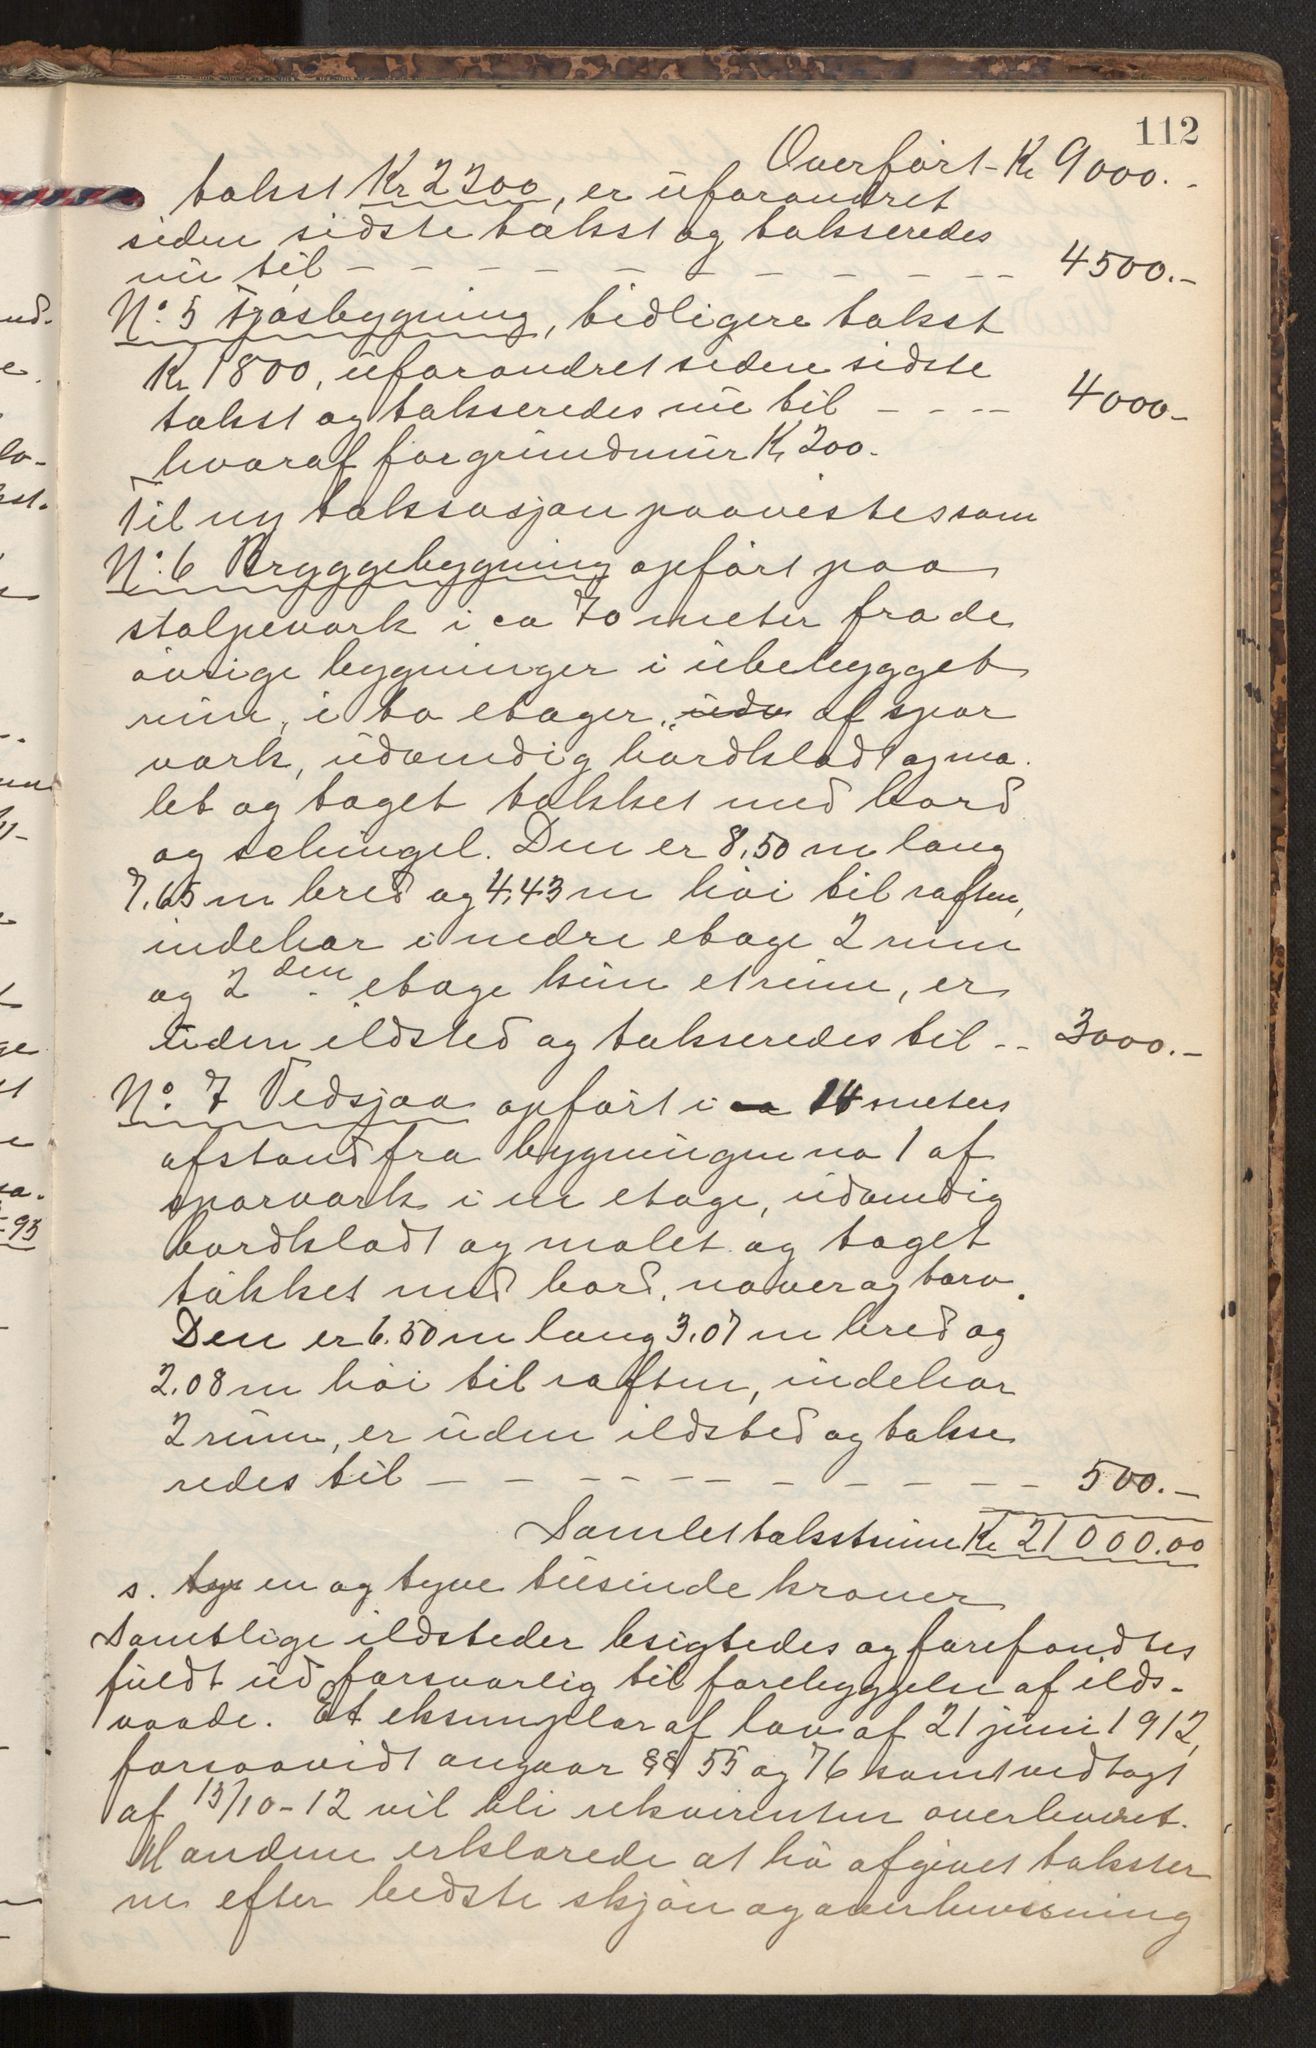 112
Overført - Kr 9000.-
takst Kr 2200, er uforandret
siden sidste takst og takseredes
nu til – – – – – – – – – 4500.-
No. 5 Fjøsbygning, tidligere takst
Kr 1800, uforandret siden sidste
takst og takseredes nu til – – – – 4000-
hvoraf for grundmur Kr 200.
Til ny taksasjon paavistes som
No. 6 Bryggebygning opført paa
stolpeverk i ca 70 meter fra de
øvrige bygninger i ubebygget
rum, i to etager, udv af spær
værk, udvendig bordklædt og ma-
let og taget tækket med bord
og schingel. Den er 8,50 m lang
7,65 m bred og 4,43 m høi til raften,
indehar i nedre etage 2 rum
og 2den etage kun et rum, er
uden ildsted og takseredes til – – 3000.-
No. 7 Vedsjaa opført i ca 14 meters
afstand fra bygningen no 1 af
spærværk i en etage, udvendig
bordklædt og malet og taget
tækket med bord, næver og torv.
Den er 6.50 m lang 3.07 m bred og
2.08 m høi til raften, indehar
2 rum, er uden ildsted og takse
redes til – – – – – – – – – 500.-
Samlet takstsum Kr 21000.00
s. tyv en og tyve tusinde kroner
Samtlige ildsteder besigtedes og forefandtes
fuldt ud forsvarlig til forebyggelse af ilds-
vaade. Et eksemplar af lov af 21 juni 1912,
forsaavidt angaar §§ 55 og 76 samt vedtægt
af 15/10-12 vil bli rekvirenten overleveret.
Mændene erklærede at ha afgivet takster
ne efter bedste skjøn og overbevisning